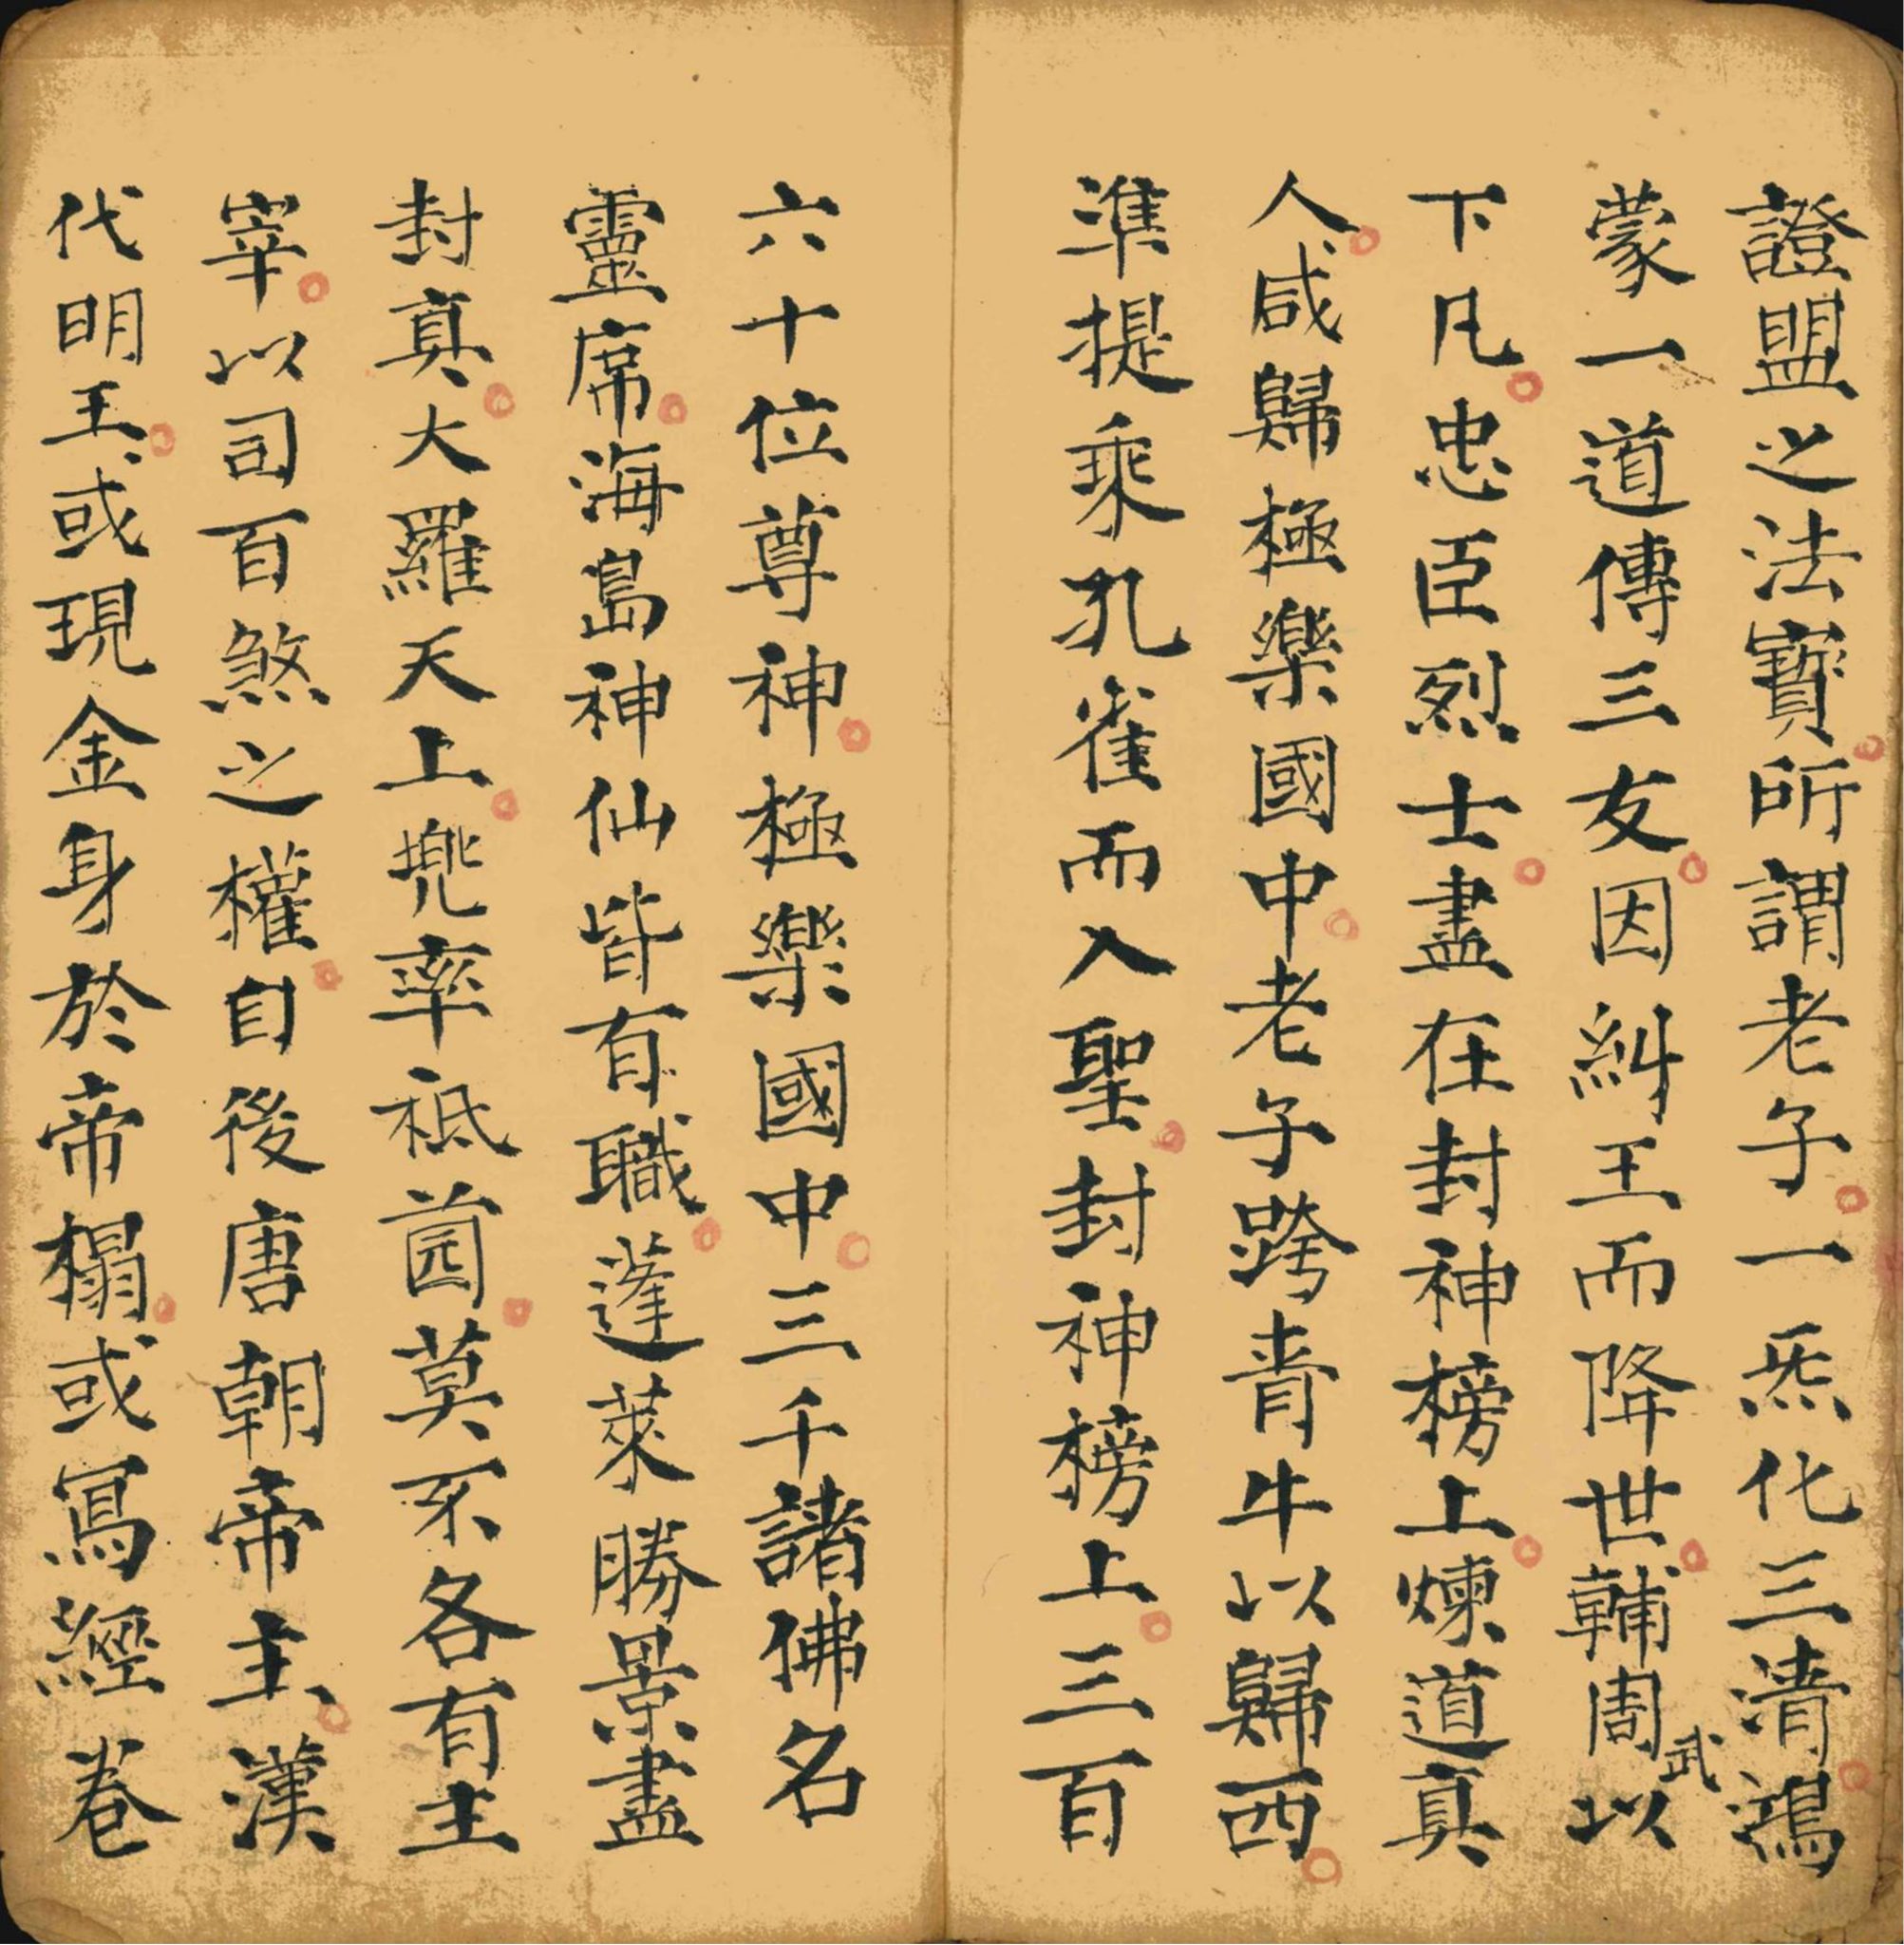 證盟之法寳所謂老子一炁化三清鴻
蒙一道傳三友因糾王而降世輔周武以
下凡忠臣烈士盡在封神榜上煉道真
人咸歸極樂國中老子跨青牛以歸西
準提乘孔雀而入聖封神榜上三百
六十位尊神極樂國中三千諸佛名
靈席海島神仙皆有職蓬萊勝景盡
封真大羅天上兜率祗園莫不各有主
宰以司百煞之權自後唐朝帝主漢
代明王或現金身於帝榻或寫經卷